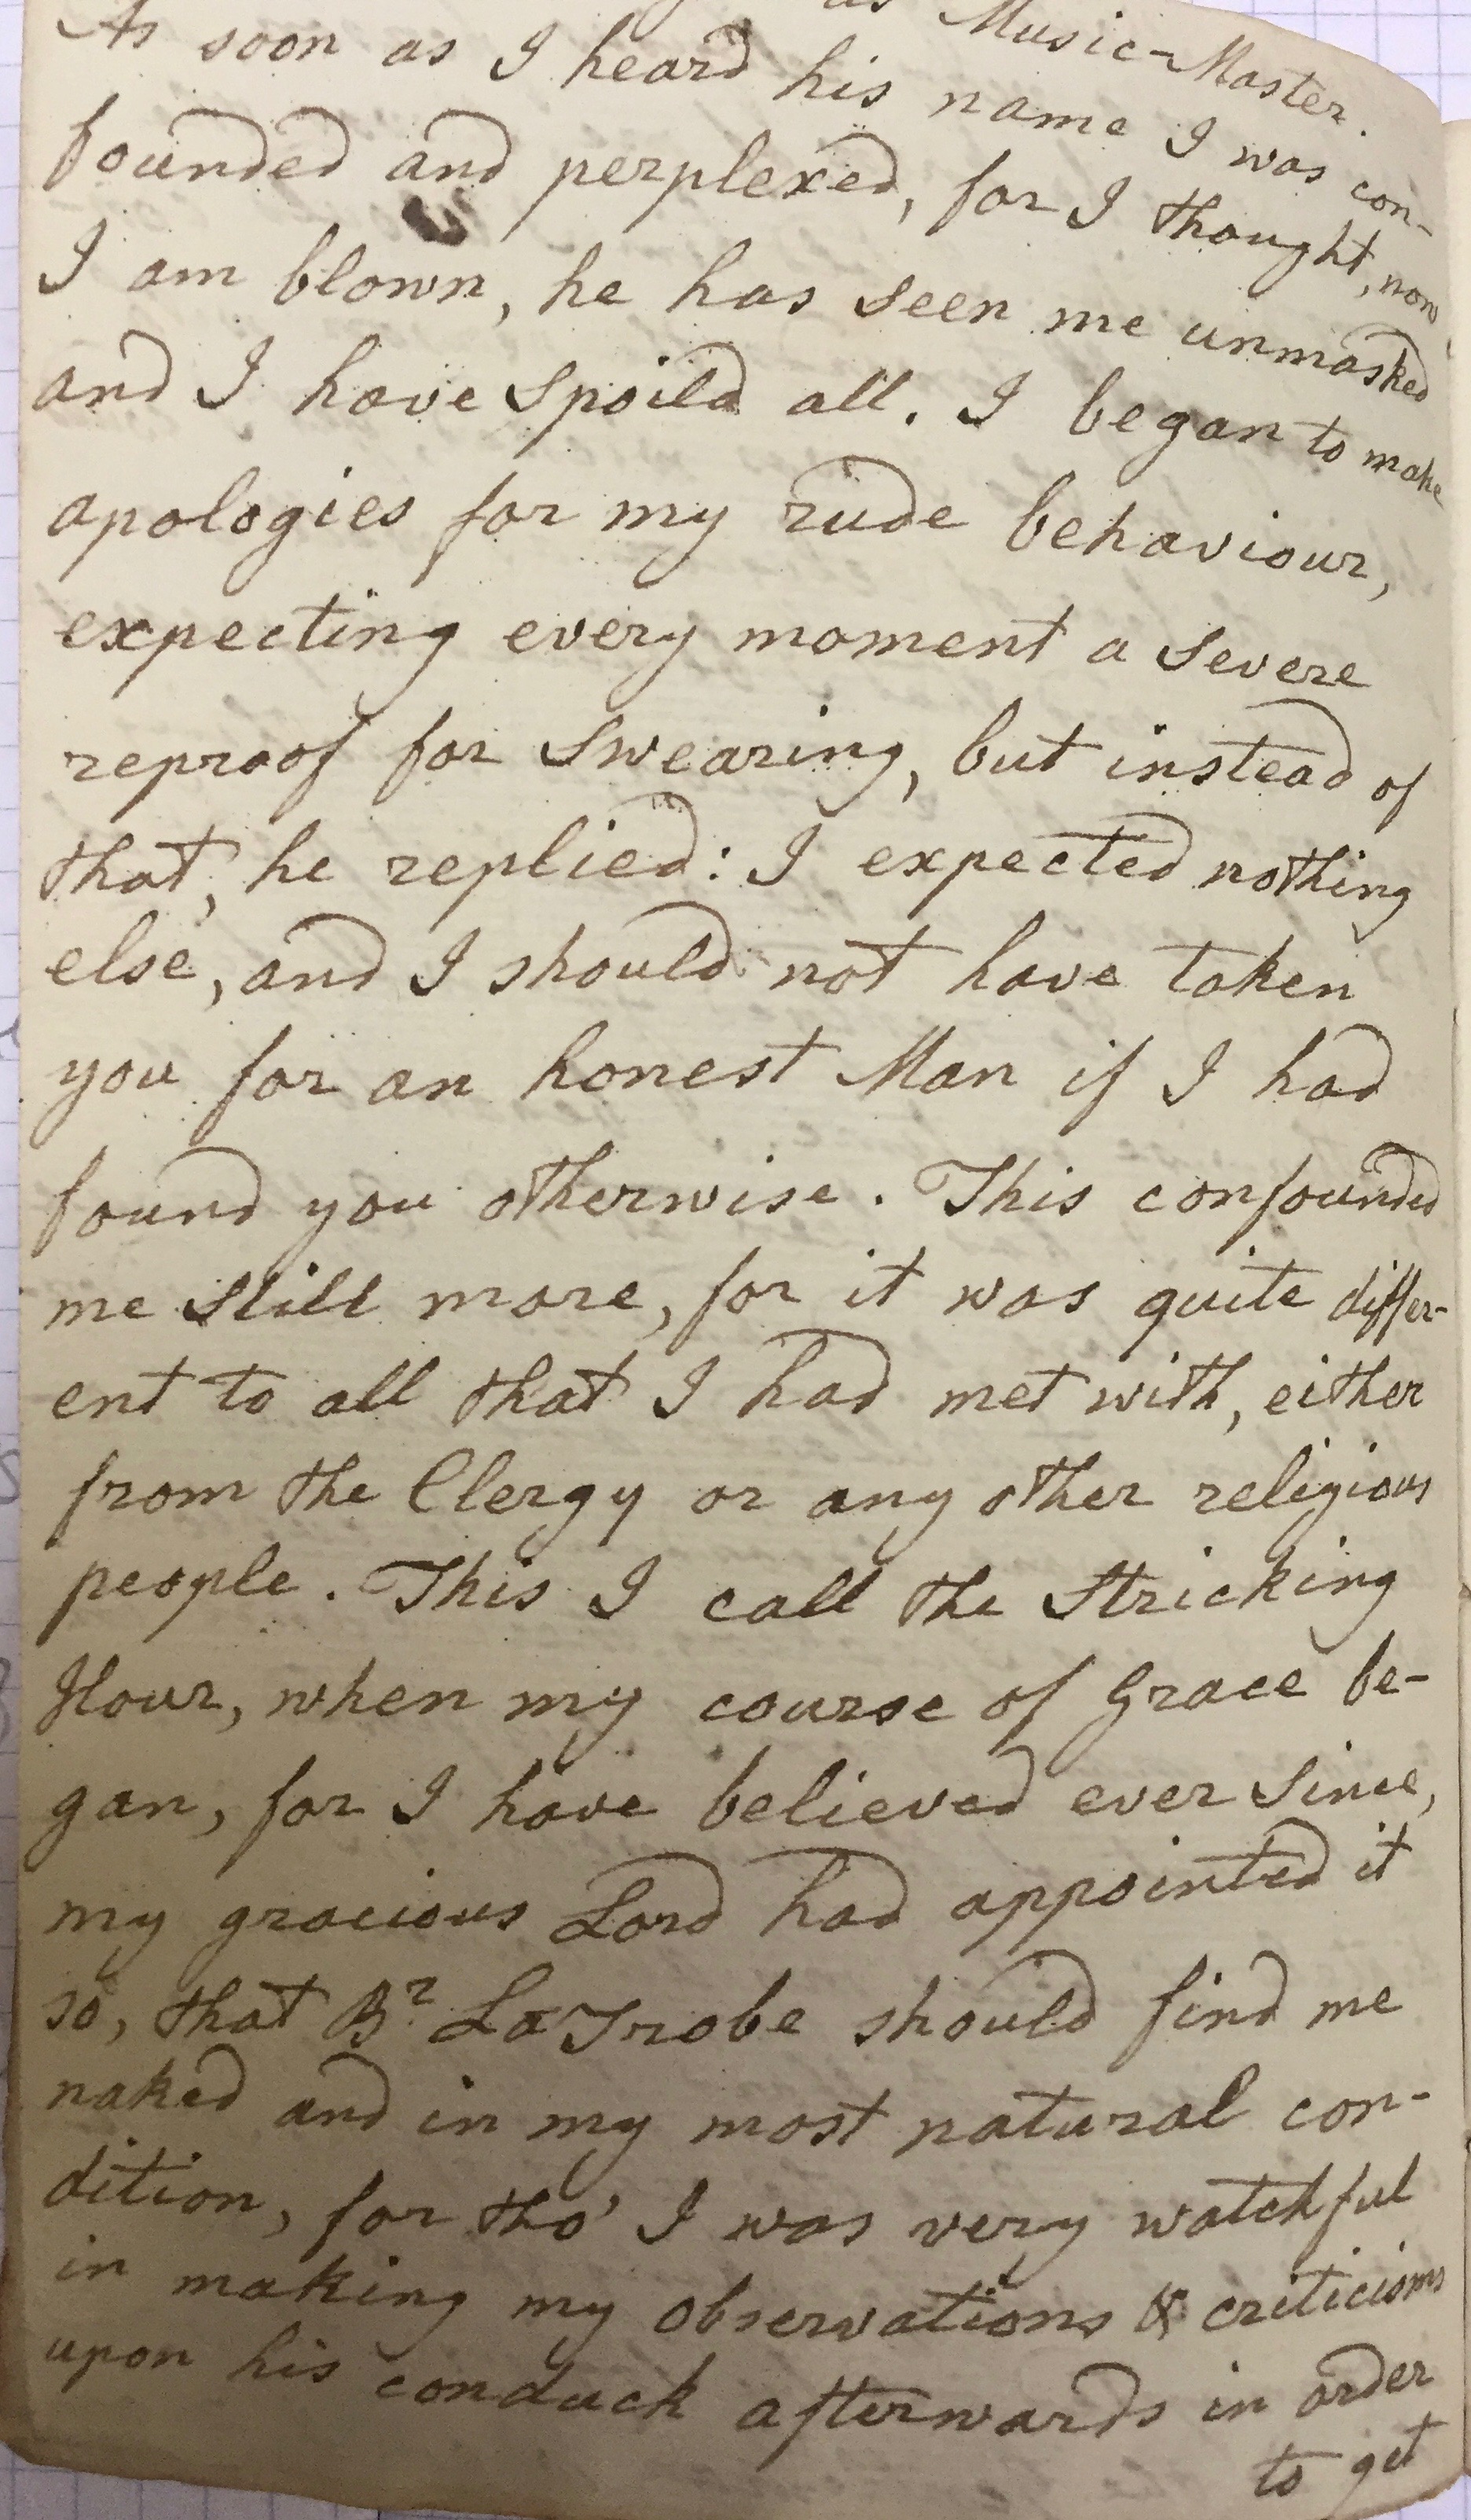 as Music-Master.
As soon as I heard his name I was con-
founded and perplexed, for I thought, now
I am blown, he has seen me unmasked
and I have spoild all. I began to make
apologies for my rude behaviour,
expecting every moment a severe
reproof for swearing, but instead of
that, he replied: I expected nothing
else, and I should not have taken
you for an honest Man if I had
found you otherwise. This confounded
me still more, for it was quite differ-
ent to all that I had met with, either
from the Clergy or any other religious
people. This I call the Stricking
Hour, when my course of Grace be-
gan, for I have believed ever since,
my gracious Lord had appointed it
so, that Br. LaTrobe should find me
naked and in my most natural con-
dition, for tho' I was very watchful
in making my observations & criticisms
upon his conduck afterwards in order
to get